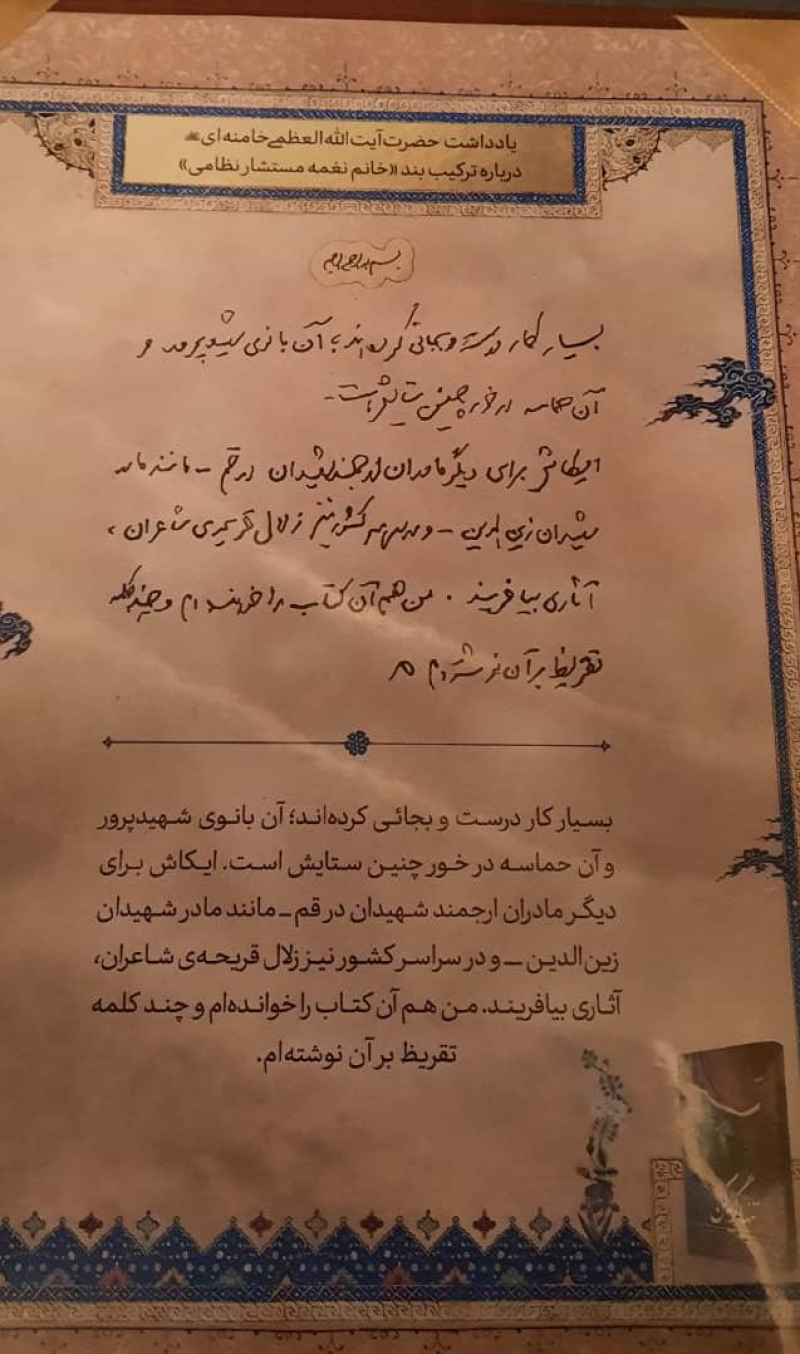 یادداشت حضرت آیت الله العظمی خامنه ای
درباره ترکیب بند «خانم نغمه مستشار نظامی»
بسم الله الرحمن الرحیم
بسیار کار درست و بجائی کرده‌اند؛ آن بانوی شهیدپرور و
آن حماسه در خور چنین ستایش است -
ایکاش برای دیگر مادران ارجمند شهیدان در قم - مانند مادر
شهیدان زین الدین - و در سراسر کشور نیز زلال قریحه‌ی شاعران،
آثاری بیافریند. من هم آن کتاب را خوانده ام و چند کلمه
تقریظ بر آن نوشته ام
بسیار کار درست و بجائی کرده‌اند؛ آن بانوی شهیدپرور
و آن حماسه در خور چنین ستایش است. ایکاش برای
دیگر مادران ارجمند شهیدان در قم ـ مانند مادر شهیدان
زین الدین ـ و در سراسر کشور نیز زلال قریحه‌ی شاعران،
آثاری بیافریند. من هم آن کتاب را خوانده‌ام و چند کلمه
تقریظ بر آن نوشته‌ام.